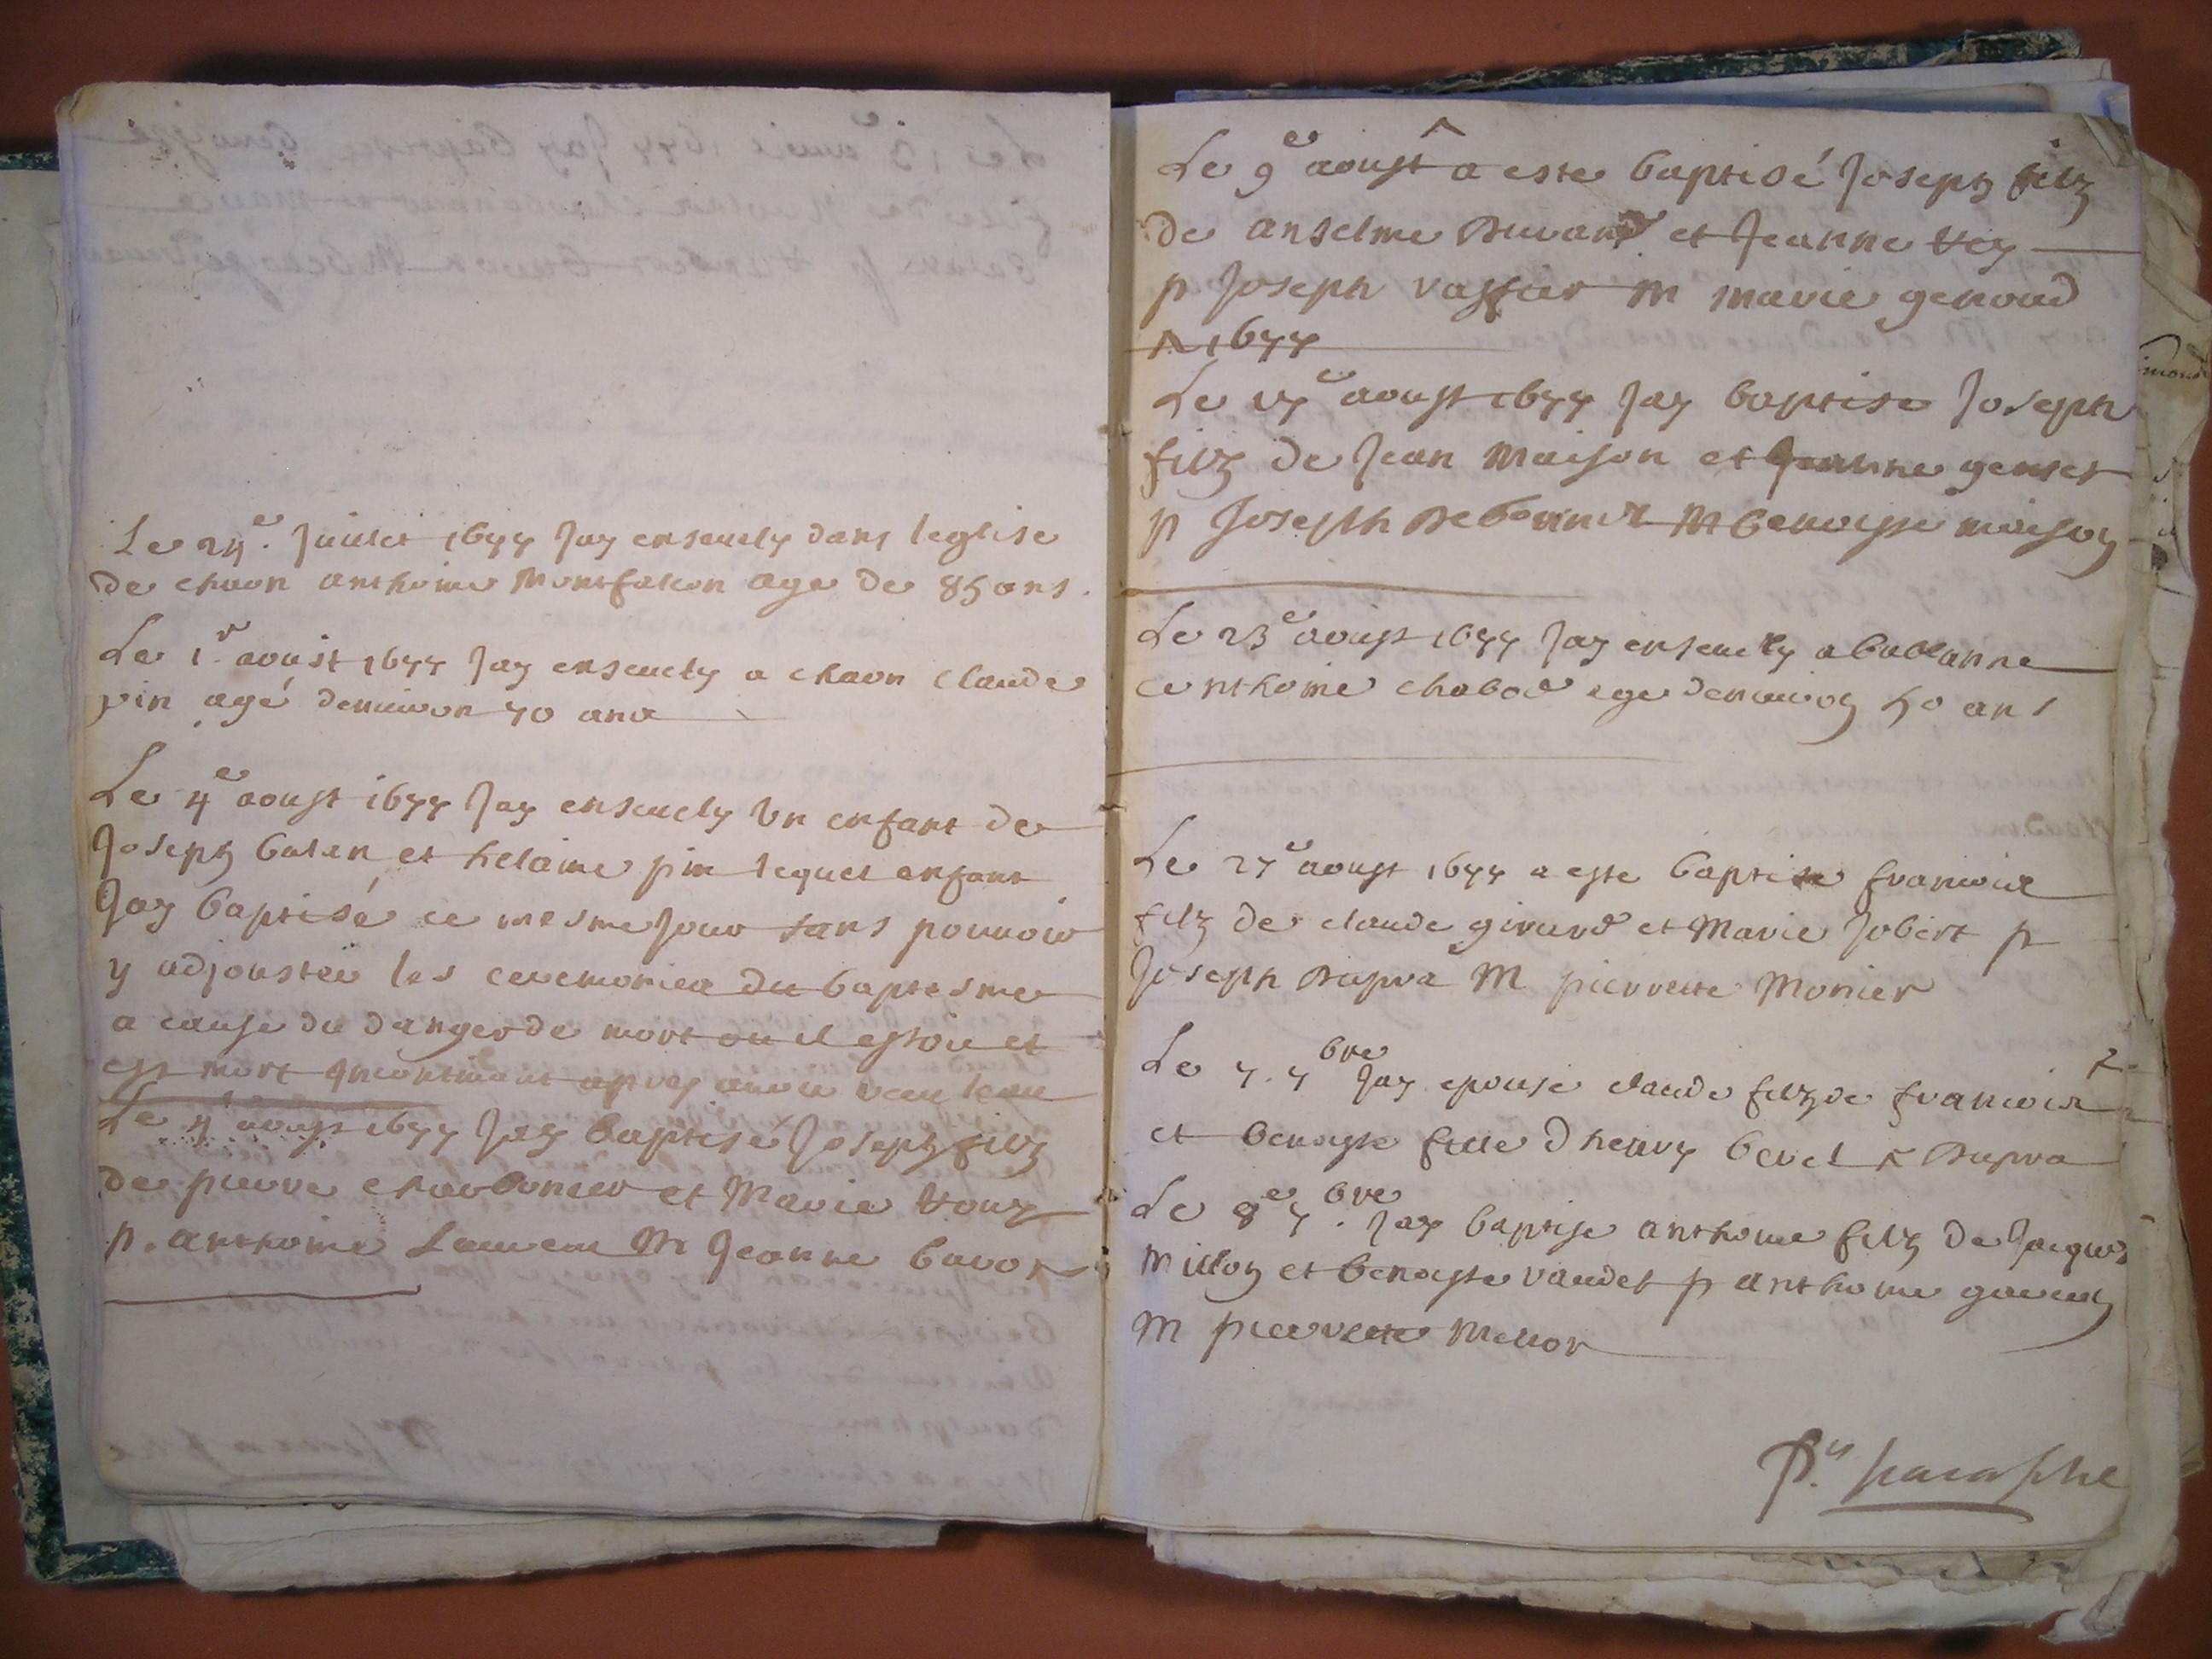 Le 24e. Juillet 1677 Jay ensevely dans leglise
de chaon anthoine Montfalcon age de 85 ans.
Le 1r. aoust 1677 Jay ensevely a chaon claude
pin agé denviron 70 ans
Le 4e aoust 1677 Jay ensevely Un enfant de
Joseph balan et helaine pin lequel enfant
Jay baptisé ce mesme Jour sans pouvoir
y adjouster les ceremonies du baptesme
a cause du danger de mort ou il estoit et
est mort incontinant apres avoir receu leau
Le 4e aoust 1677 Jay baptisé Joseph filz
de pierre charbonier et Marie
p. anthoine M Jeanne bavoz
Le 9e aoust ^ a este baptisé Joseph filz
de anselme Duvand et Jeanne
p Joseph m marie genoud
^ 1677
Le 17e aoust 1677 Jay baptise Joseph
filz de Jean Maison et Jeanne genset
p Joseph M benoyste maison
Le 23e aoust 1677 Jay ensevely a
anthoine chabod age denviron 50 ans
Le 27e aoust 1677 a este baptise francois
filz de claude girard et Marie Jobert p
Joseph Dupra M pierrette Monier
Le 7. 7bre Jay epouse claude filz de francois ^
et benoyste fille d henry bevel ^ Dupra
Le 8e 7bre. Jay baptise anthoine filz de Jacques
Millon et benoyste vaudet p anthoine
M pierrette Millon